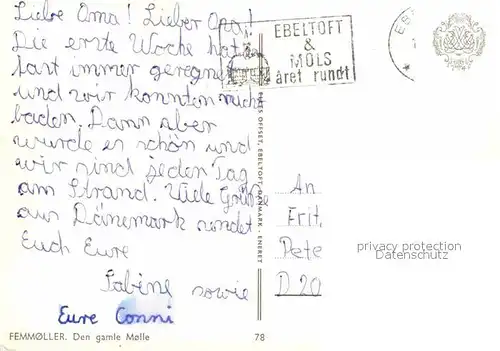 Liebe Oma! Lieber Opa!
Die erste Woche hat es
fast immer geregnet
und wir konnten nicht
baden. Dann aber
wurde es schön und
wir sind jeden Tag
am Strand. Viele Grüße
aus Dänemark sendet
Euch Eure
Sabine sowie
Eure Conni
FEMMØLLER. Den gamle Mølle 78
EBELTOFT
&
MOLS
året rundt
OFFSET, EBELTOFT, DANMARK - ENERET
An
Frit
Pete
D 20
privacy protection
Datenschutz